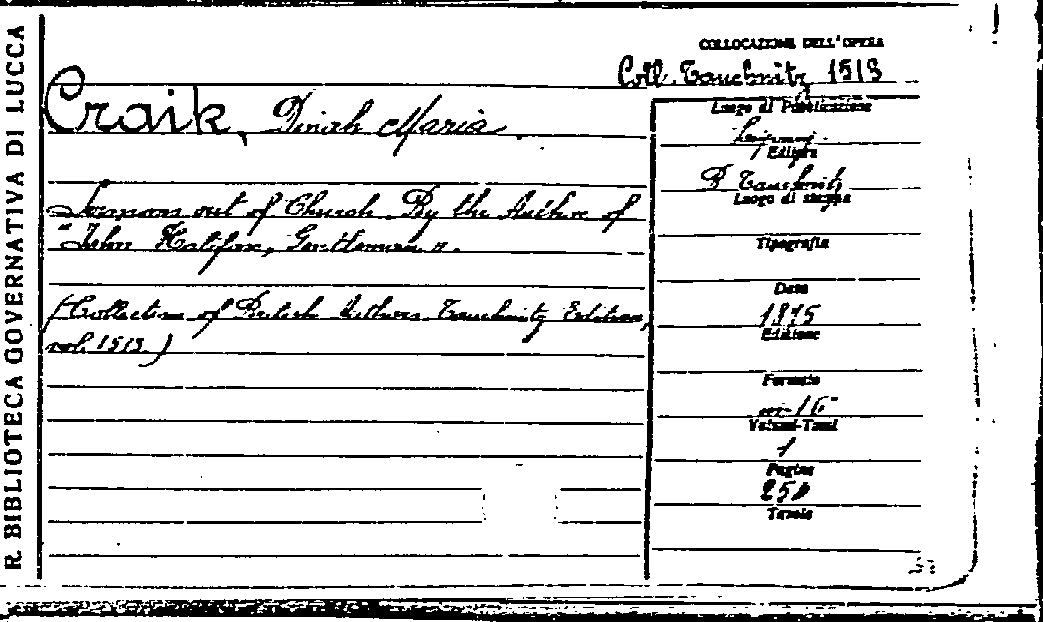 R. BIBLIOTECA GOVERNATIVA DI LUCCA
COLLOCAZIONE DELL'OPERA
Coll. Tauchnitz 1513
Craik, Dinah Maria
Sermons out of Church. By the Author of
"John Halifax, Gentleman".
(Collection of British Authors Tauchnitz Edition,
vol. 1513.)
Luogo di Pubblicazione
Editore
B Tauchnitz
Luogo di stampa
Tipografia
Data
1875
Edizione
Formato
in-16°
Volumi-Tomi
1
Pagine
Tavole